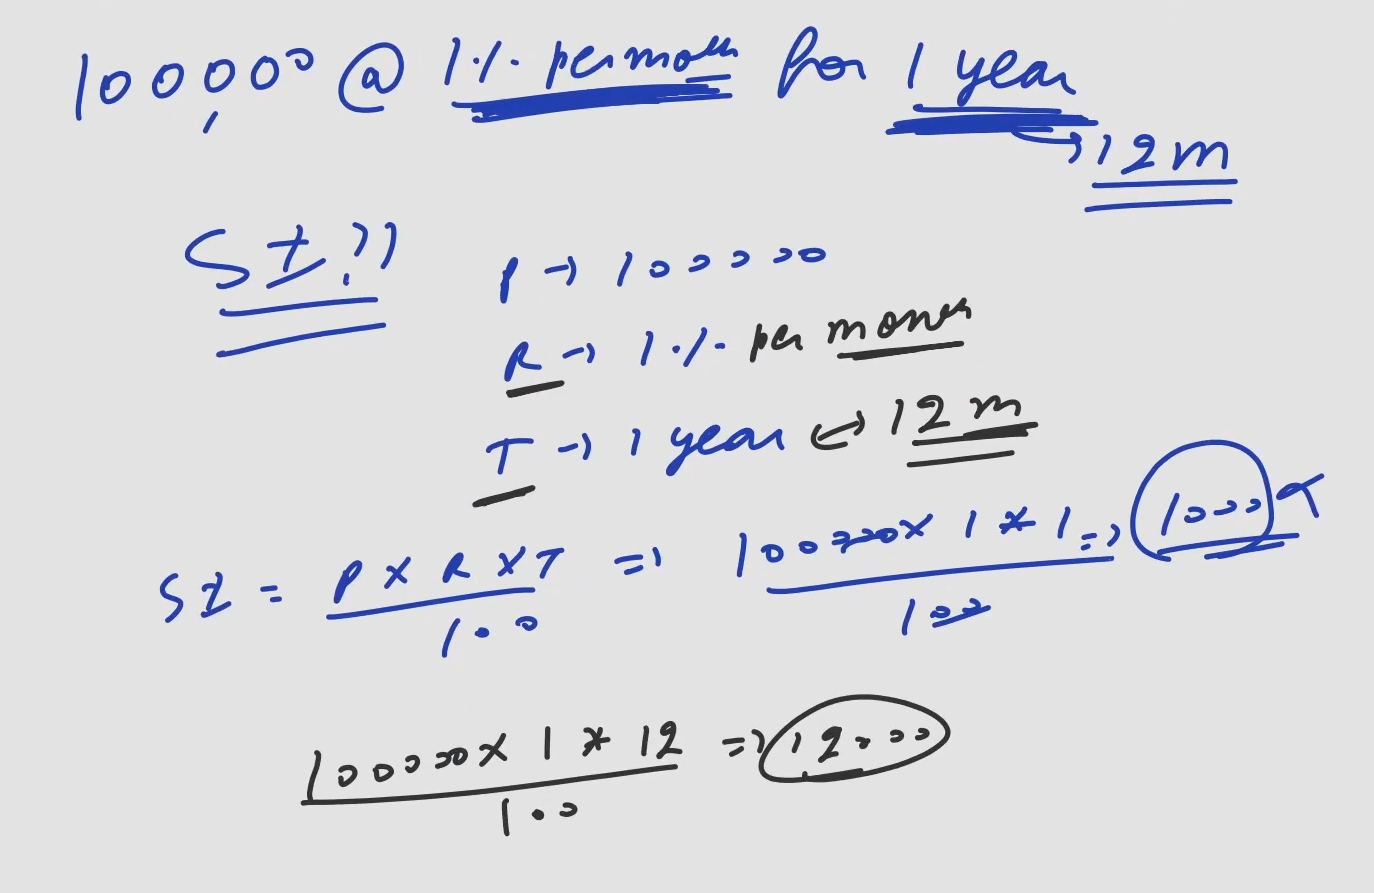 100,000 @ 1% per month for 1 year
→ 12m
SI??
P → 100000
R → 1% per month
T → 1 year ↔ 12m
SI = P X R X T / 100 => 100000 X 1 * 1 / 100 => 1000
100000 X 1 * 12 / 100 => 12000